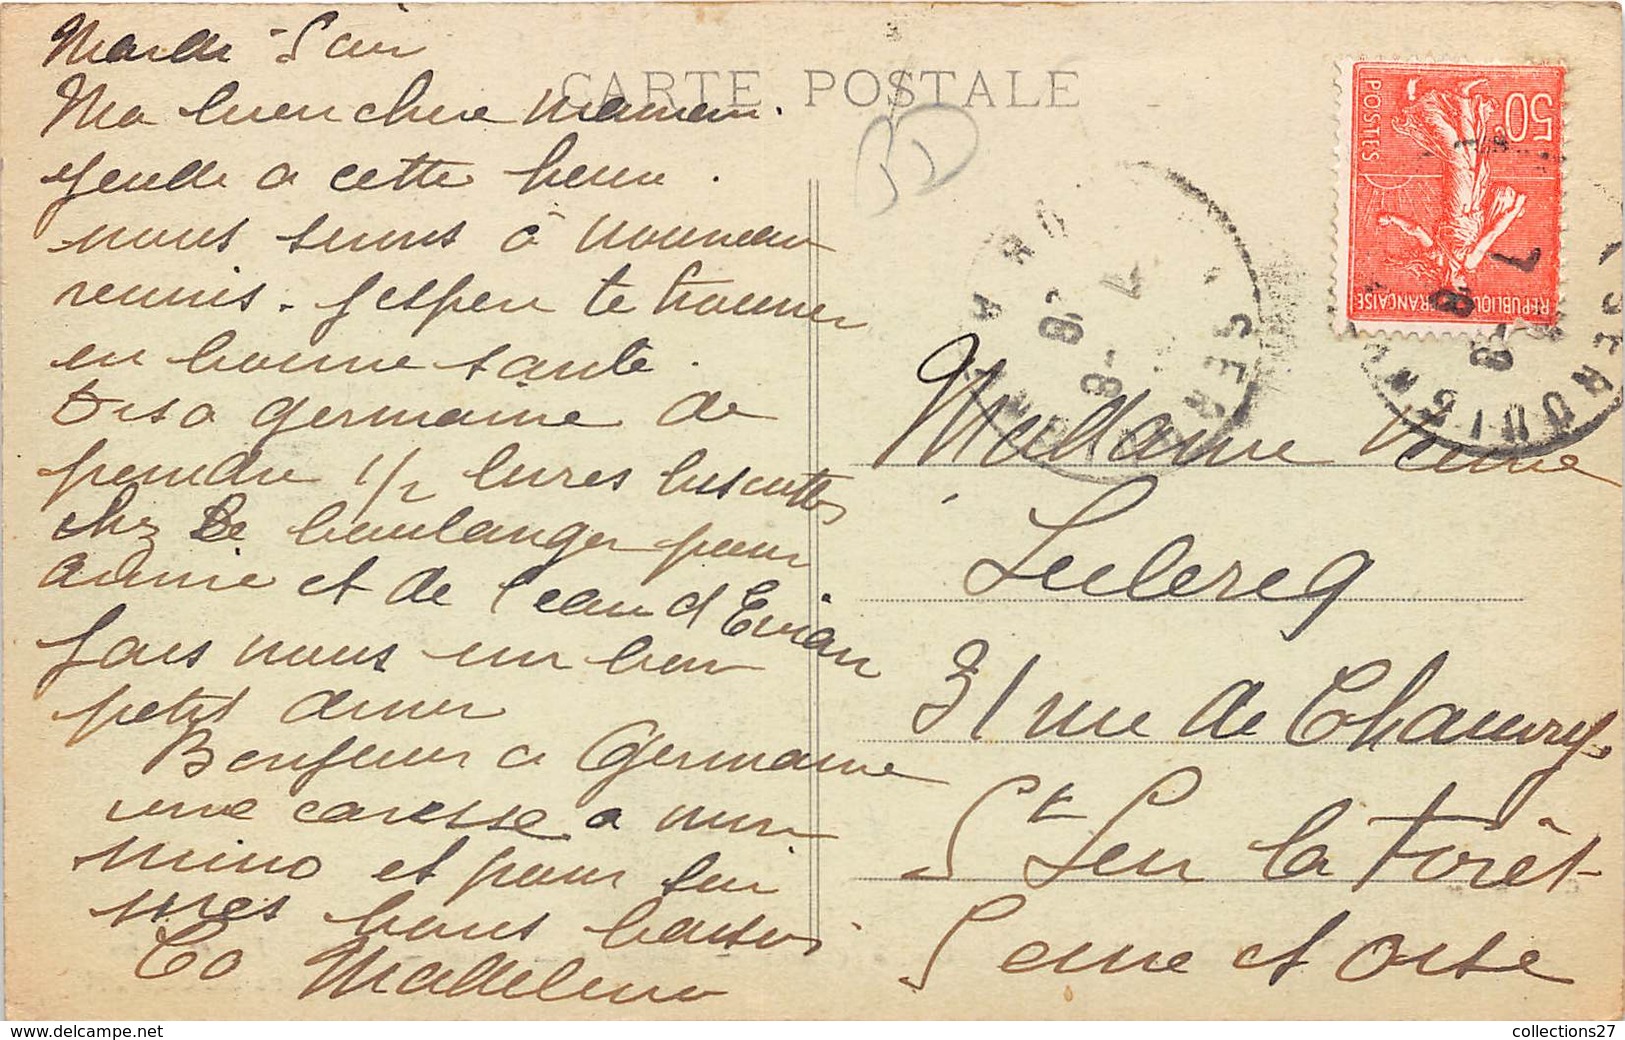 Mardi-Soir
Ma bien chere maman.
jeudi a cette heure.
nous serons à nouveau
reunis. J espere te trouver
en bonne sante.
Dis a Germaine de
prendre 1/2 livres biscottes
chez Le boulanger pour
annie et de l eau d Evian
fais nous un bon
petit diner
Bonjour a Germaine
une caresse a mon
mino et pour toi
mes bons baisers
Ta Madeleine
CARTE POSTALE
50c
POSTES
REPUBLIQUE FRANÇAISE
SERQUIGNY
7 -8
Madame Veuve
Leclercq
31 rue de Chauvry
St Leu la Forêt
Seine et Oise
collections27